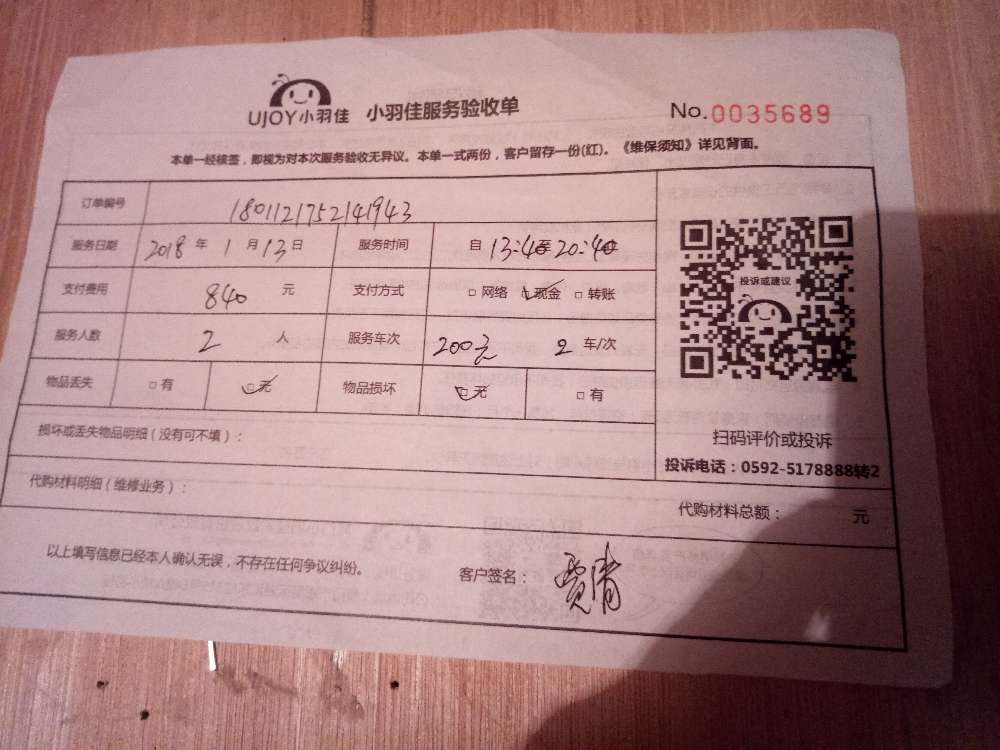 UJOY小羽佳 小羽佳服务验收单 No.0035689
本单一经核签，即视为对本次服务验收无异议。本单一式两份，客户留存一份(红)。《维保须知》详见背面。
订单编号 1801121752141943
服务日期 2018年1月13日 服务时间 自13:40至20:40
支付费用 840元 支付方式 □网络 ☑现金 □转账
服务人数 2人 服务车次 200元 2车/次
物品丢失 □有 ☑无 物品损坏 ☑无 □有
损坏或丢失物品明细（没有可不填）：
代购材料明细（维修业务）：
代购材料总额： 元
以上填写信息已经本人确认无误，不存在任何争议纠纷。 客户签名：
投诉或建议
扫码评价或投诉
投诉电话：0592-5178888转2